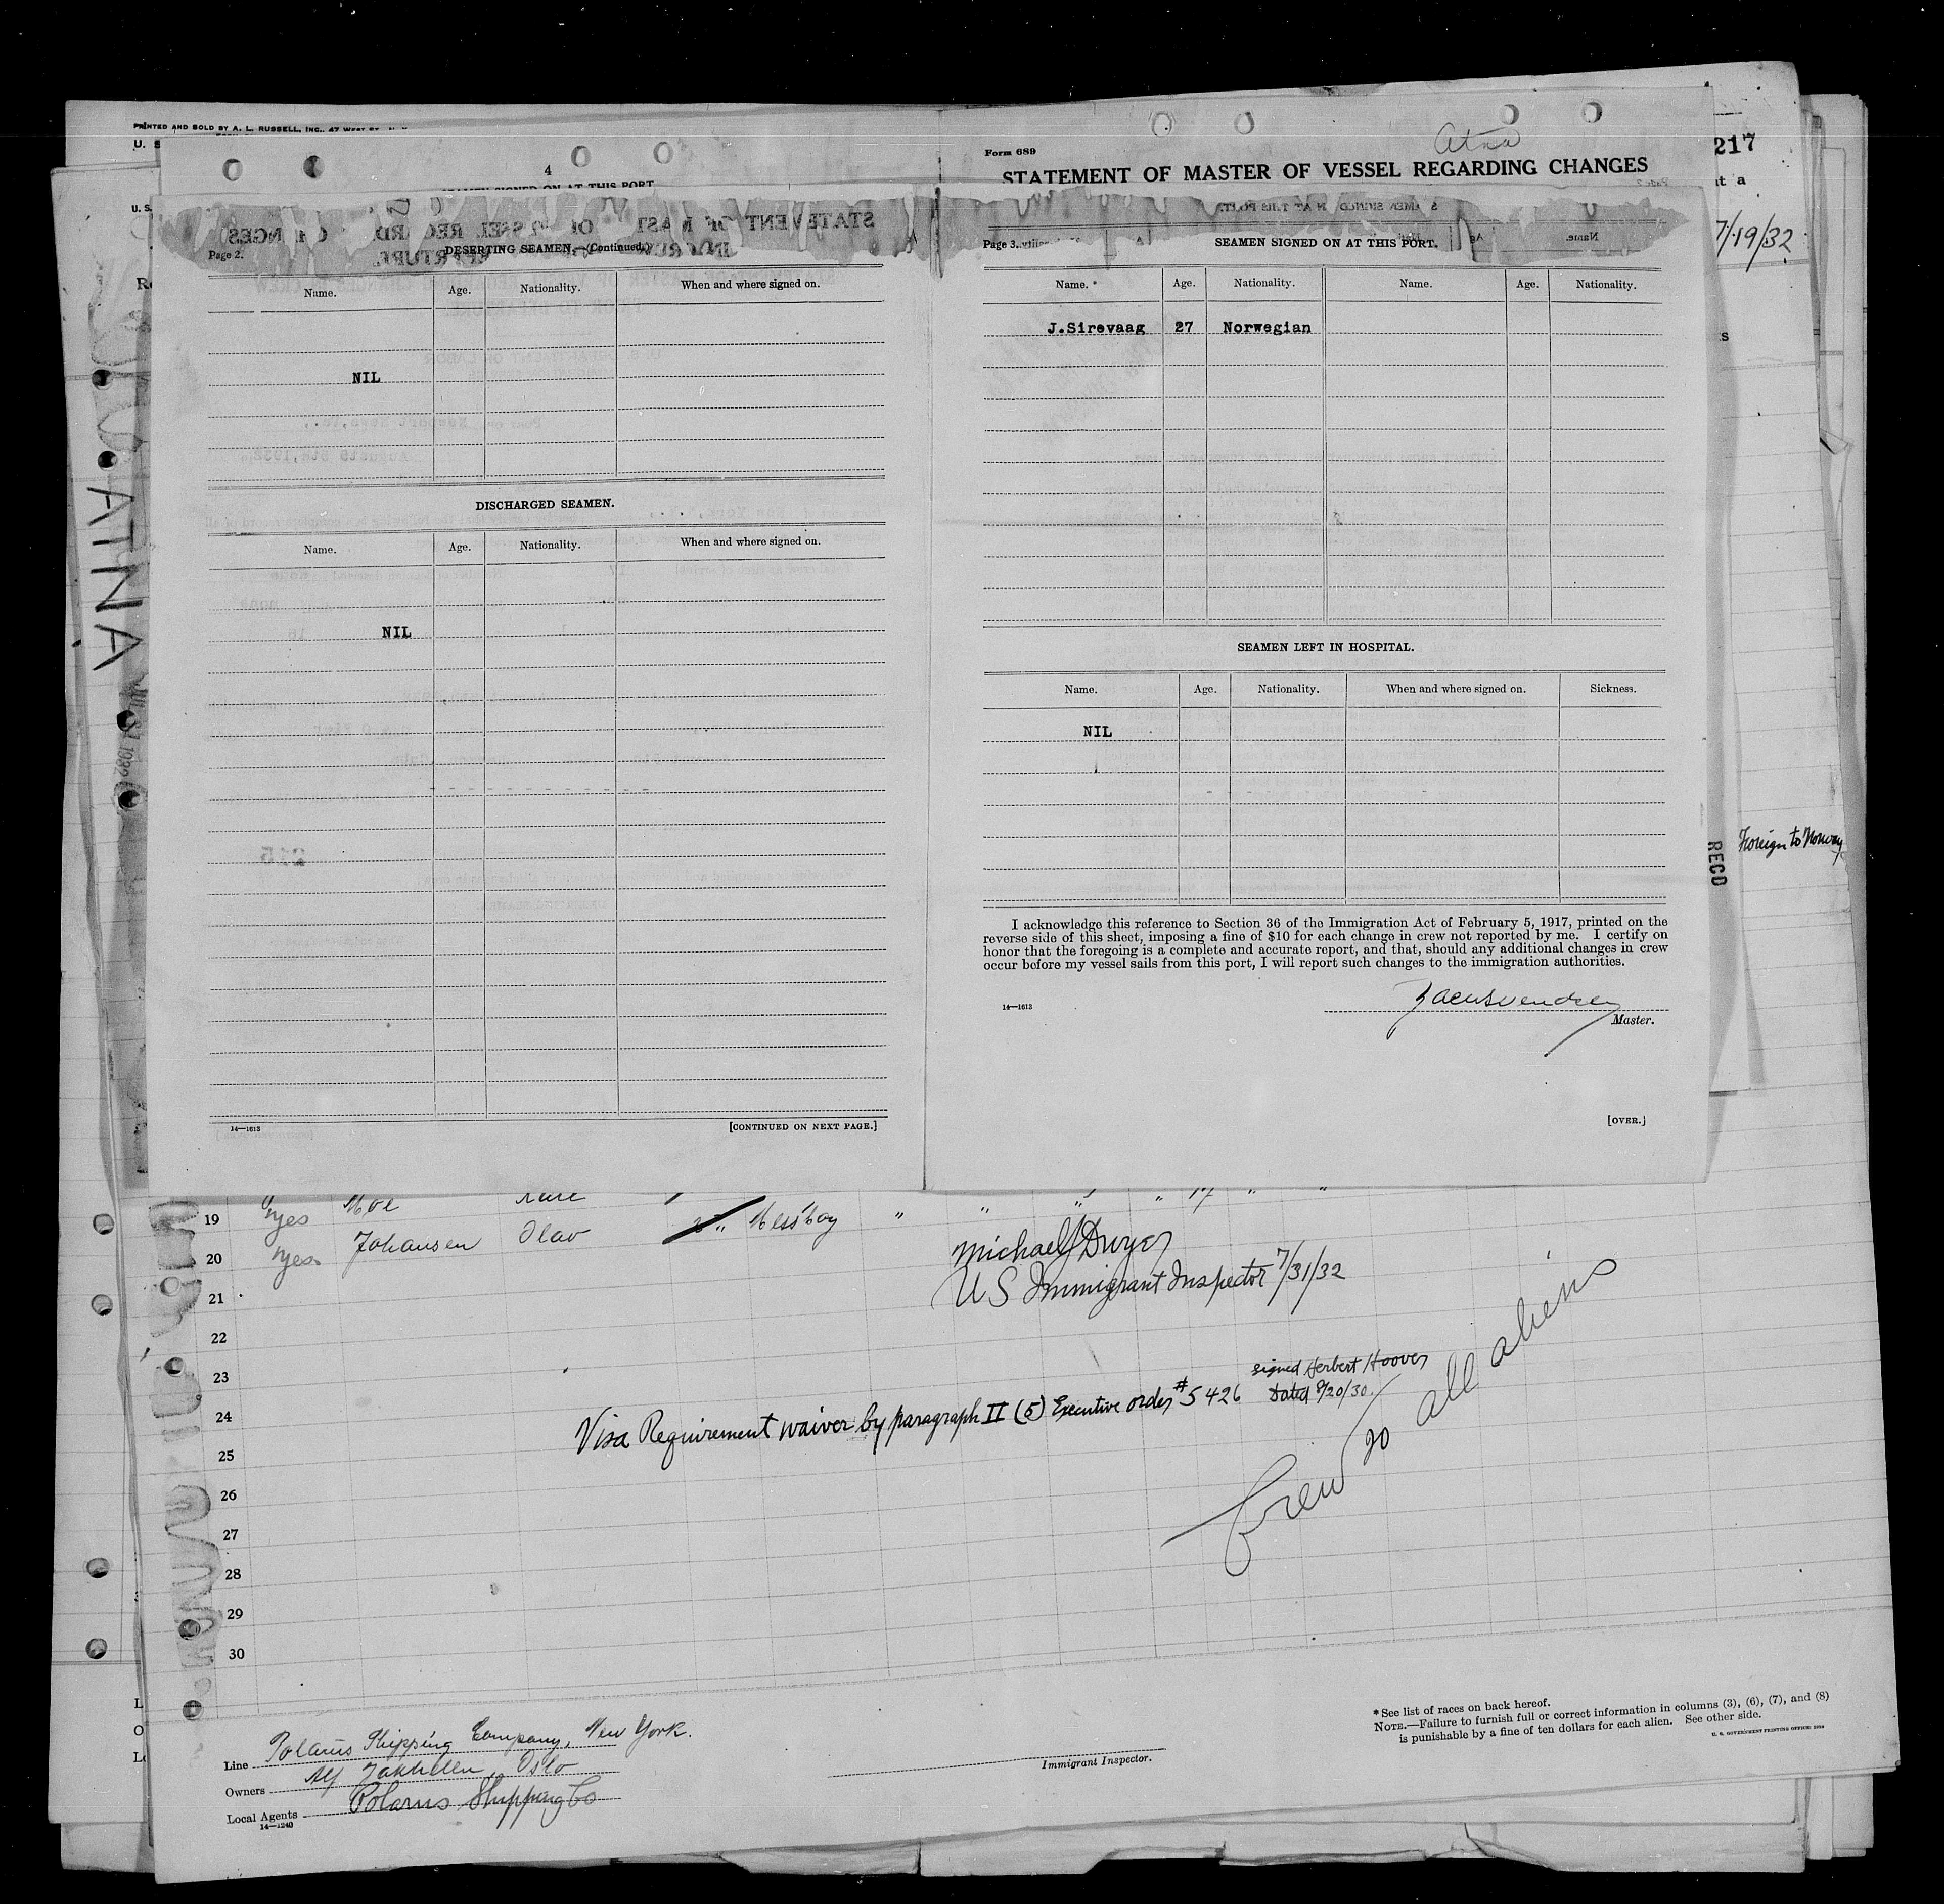 PRINTED AND SOLD BY A. L. RUSSELL, INC., 47 WEST ST.
U. S.
4
SEAMEN SIGNED ON AT THIS PORT
Form 689
Atna
STATEMENT OF MASTER OF VESSEL REGARDING CHANGES
217
at a
7/19/32
U. S.
Page 2.
DESERTING SEAMEN.—(Continued.)
Name. Age. Nationality. When and where signed on.
NIL
DISCHARGED SEAMEN.
Name. Age. Nationality. When and where signed on.
NIL
14—1613
[CONTINUED ON NEXT PAGE.]
Page 3.
SEAMEN SIGNED ON AT THIS PORT.
Name. Age. Nationality. Name. Age. Nationality.
J.Sirevaag 27 Norwegian
SEAMEN LEFT IN HOSPITAL.
Name. Age. Nationality. When and where signed on. Sickness.
NIL
I acknowledge this reference to Section 36 of the Immigration Act of February 5, 1917, printed on the
reverse side of this sheet, imposing a fine of $10 for each change in crew not reported by me. I certify on
honor that the foregoing is a complete and accurate report, and that, should any additional changes in crew
occur before my vessel sails from this port, I will report such changes to the immigration authorities.
14—1613
Master.
[OVER.]
ATNA
1932
RECD
Foreign to Norway
19 yes Moe
20 yes Johansen Olav " Messboy "
21
22
23
24
25
26
27
28
29
30
Michael J Dwyer
U S Immigrant Inspector 7/31/32
Visa Requirement waiver by paragraph II (5) Executive order #5426 signed Herbert Hoover
Dated 8/20/30.
Crew 20 all aliens
Line Polarus Shipping Company, New York.
Owners Oslo
Local Agents Polarus Shipping Co
14—1240
Immigrant Inspector.
* See list of races on back hereof.
NOTE.—Failure to furnish full or correct information in columns (3), (6), (7), and (8)
is punishable by a fine of ten dollars for each alien. See other side.
U. S. GOVERNMENT PRINTING OFFICE: